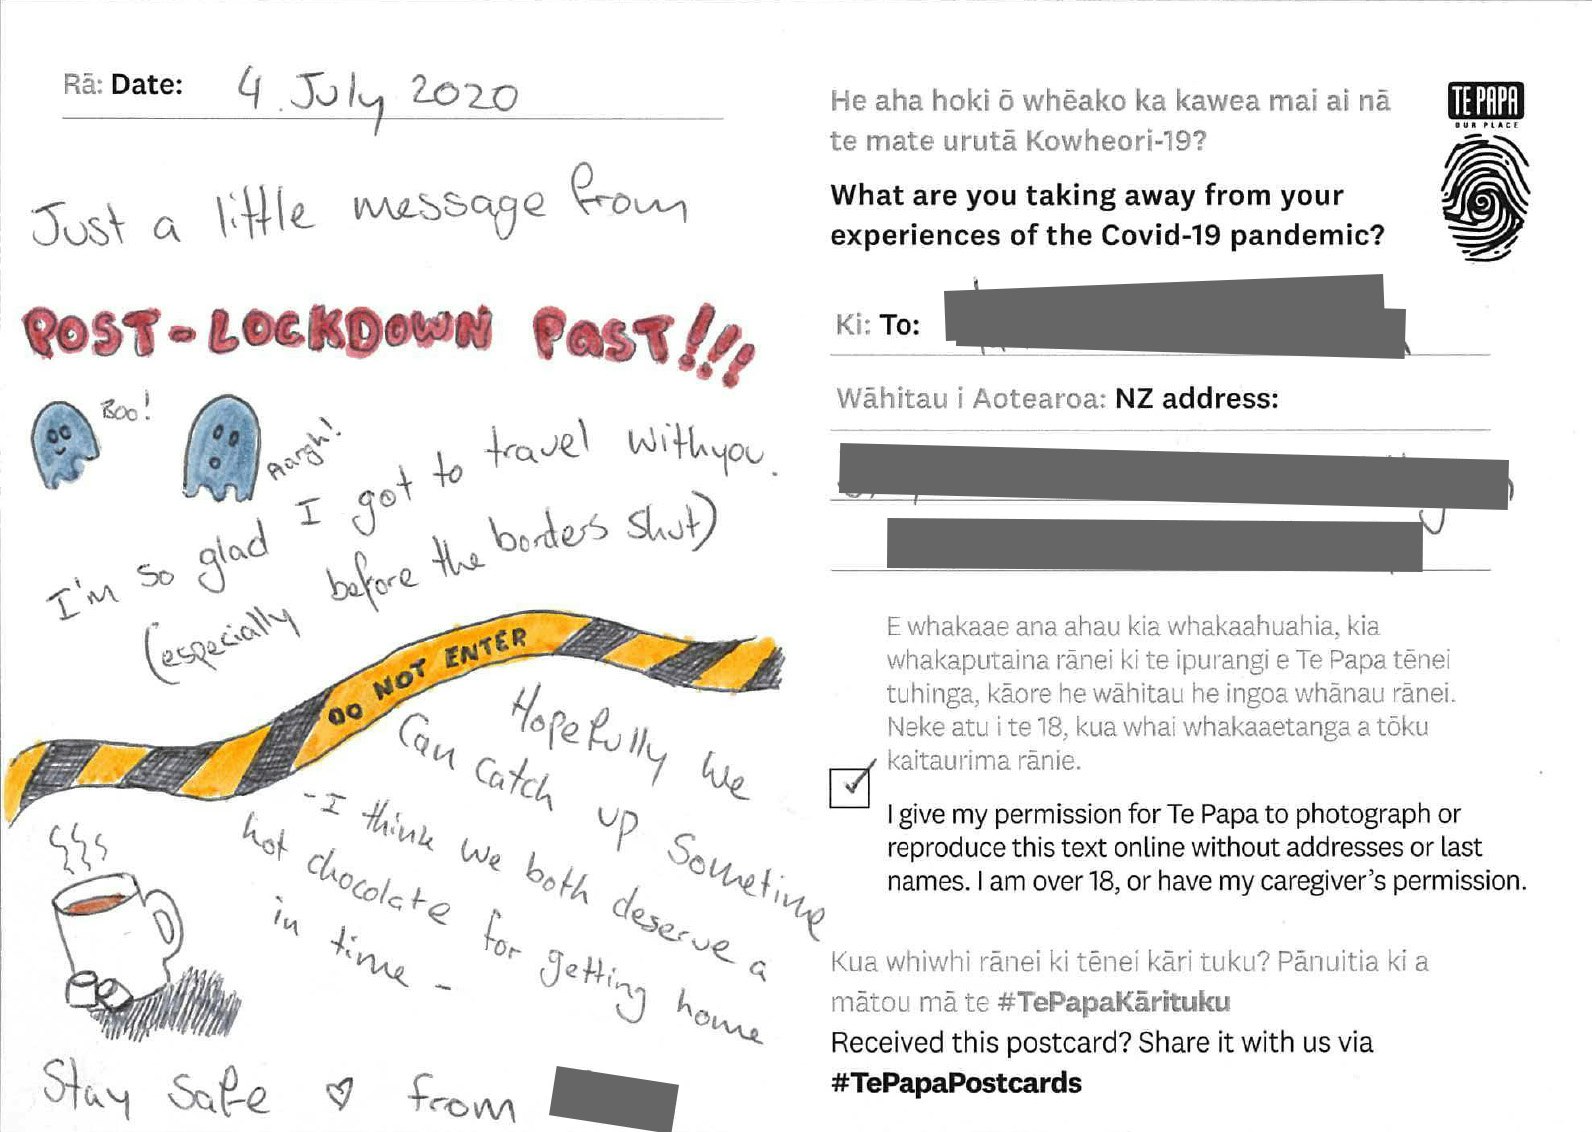 Rā: Date: 4 July 2020
Just a little message from
POST-LOCKDOWN PAST!!!
Boo!
Aargh!
I'm so glad I got to travel with you.
(especially before the borders shut)
DO NOT ENTER
Hopefully we
can catch up sometime
- I think we both deserve a
hot chocolate for getting home
in time -
Stay safe ♡ from
He aha hoki ō whēako ka kawea mai ai nā
te mate urutā Kowheori-19?
What are you taking away from your
experiences of the Covid-19 pandemic?
TE PAPA
OUR PLACE
Ki: To:
Wāhitau i Aotearoa: NZ address:
E whakaae ana ahau kia whakaahuahia, kia
whakaputaina rānei ki te ipurangi e Te Papa tēnei
tuhinga, kāore he wāhitau he ingoa whānau rānei.
Neke atu i te 18, kua whai whakaaetanga a tōku
kaitaurima rānie.
I give my permission for Te Papa to photograph or
reproduce this text online without addresses or last
names. I am over 18, or have my caregiver's permission.
Kua whiwhi rānei ki tēnei kāri tuku? Pānuitia ki a
mātou mā te #TePapaKārituku
Received this postcard? Share it with us via
#TePapaPostcards